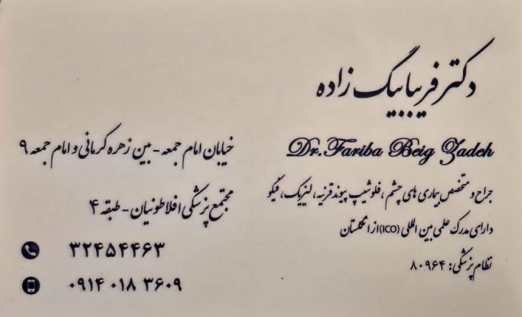 دکتر فریبا بیگ زاده
Dr.Fariba Beig Zadeh
جراح و متخصص بیماری های چشم ، فلوشیپ پیوند قرنیه ، لیزیک ، فیکو
دارای مدرک علمی بین المللی (ICO) از انگلستان
نظام پزشکی: ۸۰۹۶۴
خیابان امام جمعه - بین زهره کرمانی و امام جمعه ۹
مجتمع پزشکی افلاطونیان - طبقه ۴
۳۲۴۵۴۴۶۳
۰۹۱۴ ۰۱۸ ۳۶۰۹